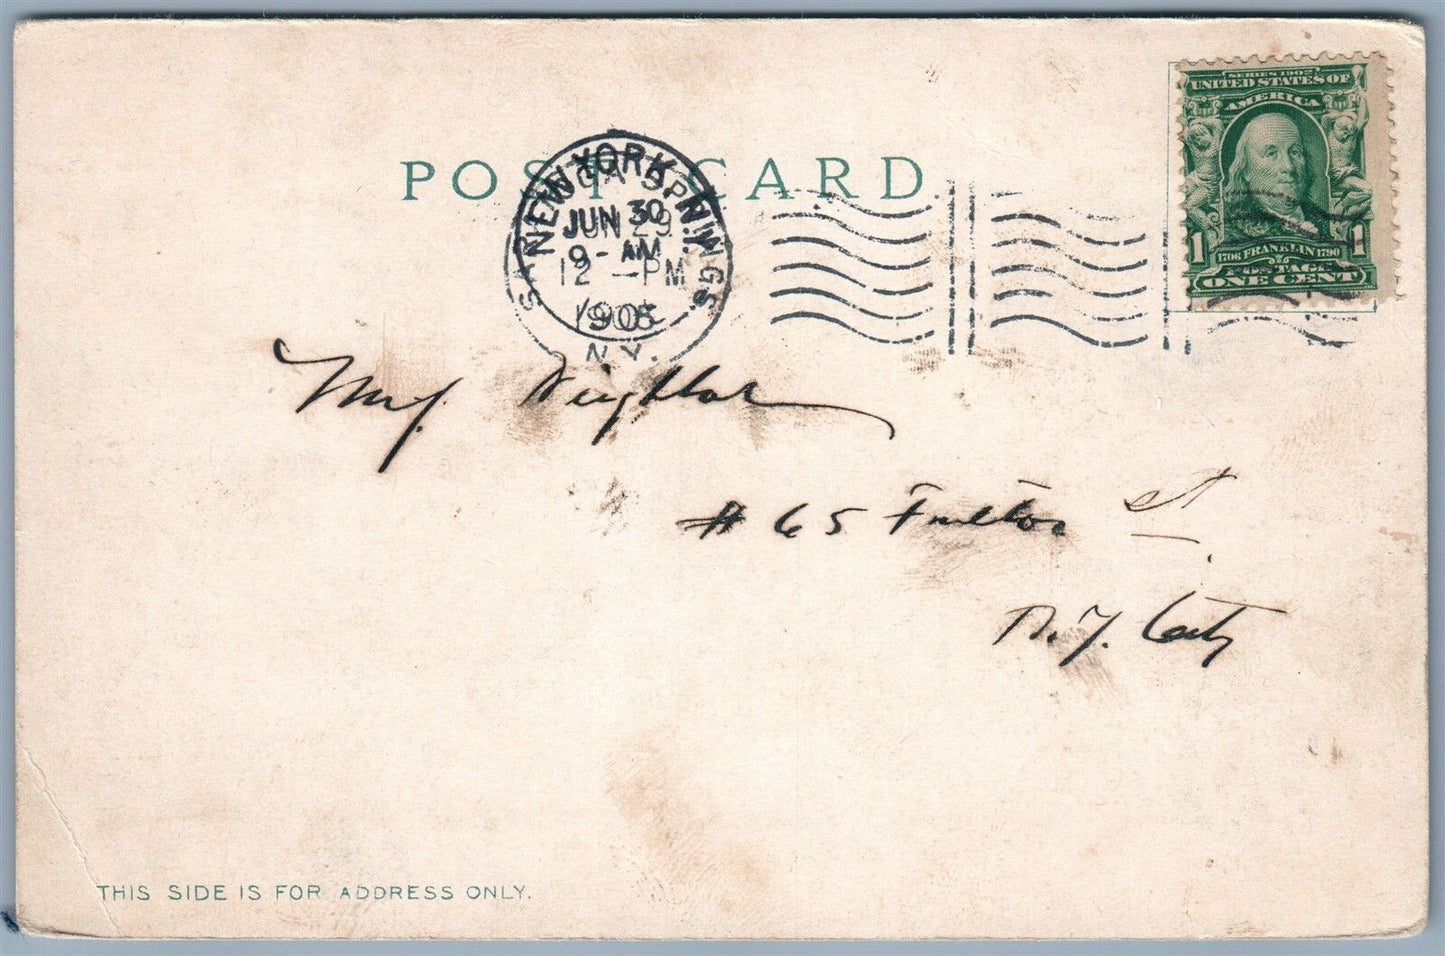 POST CARD
SERIES 1902
UNITED STATES OF
AMERICA
1706 FRANKLIN 1790
1 1
POSTAGE
ONE CENT
NEW YORK, N.Y.
JUN 30
9 - AM
1905
SPRINGS
JUN 29
12 - PM
N.Y.
# 65 Fulton St.
N.Y. City
THIS SIDE IS FOR ADDRESS ONLY.